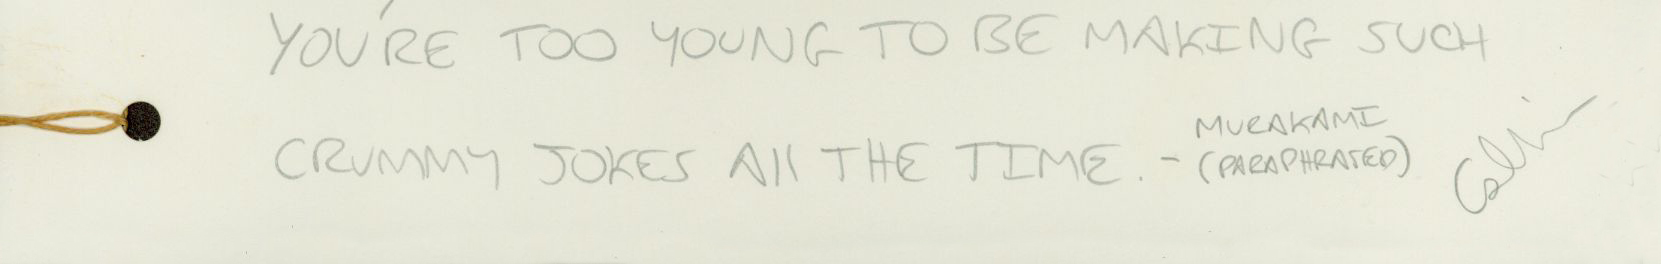 YOU'RE TOO YOUNG TO BE MAKING SUCH
CRUMMY JOKES All THE TIME. - MURAKAMI
(PARAPHRATED)